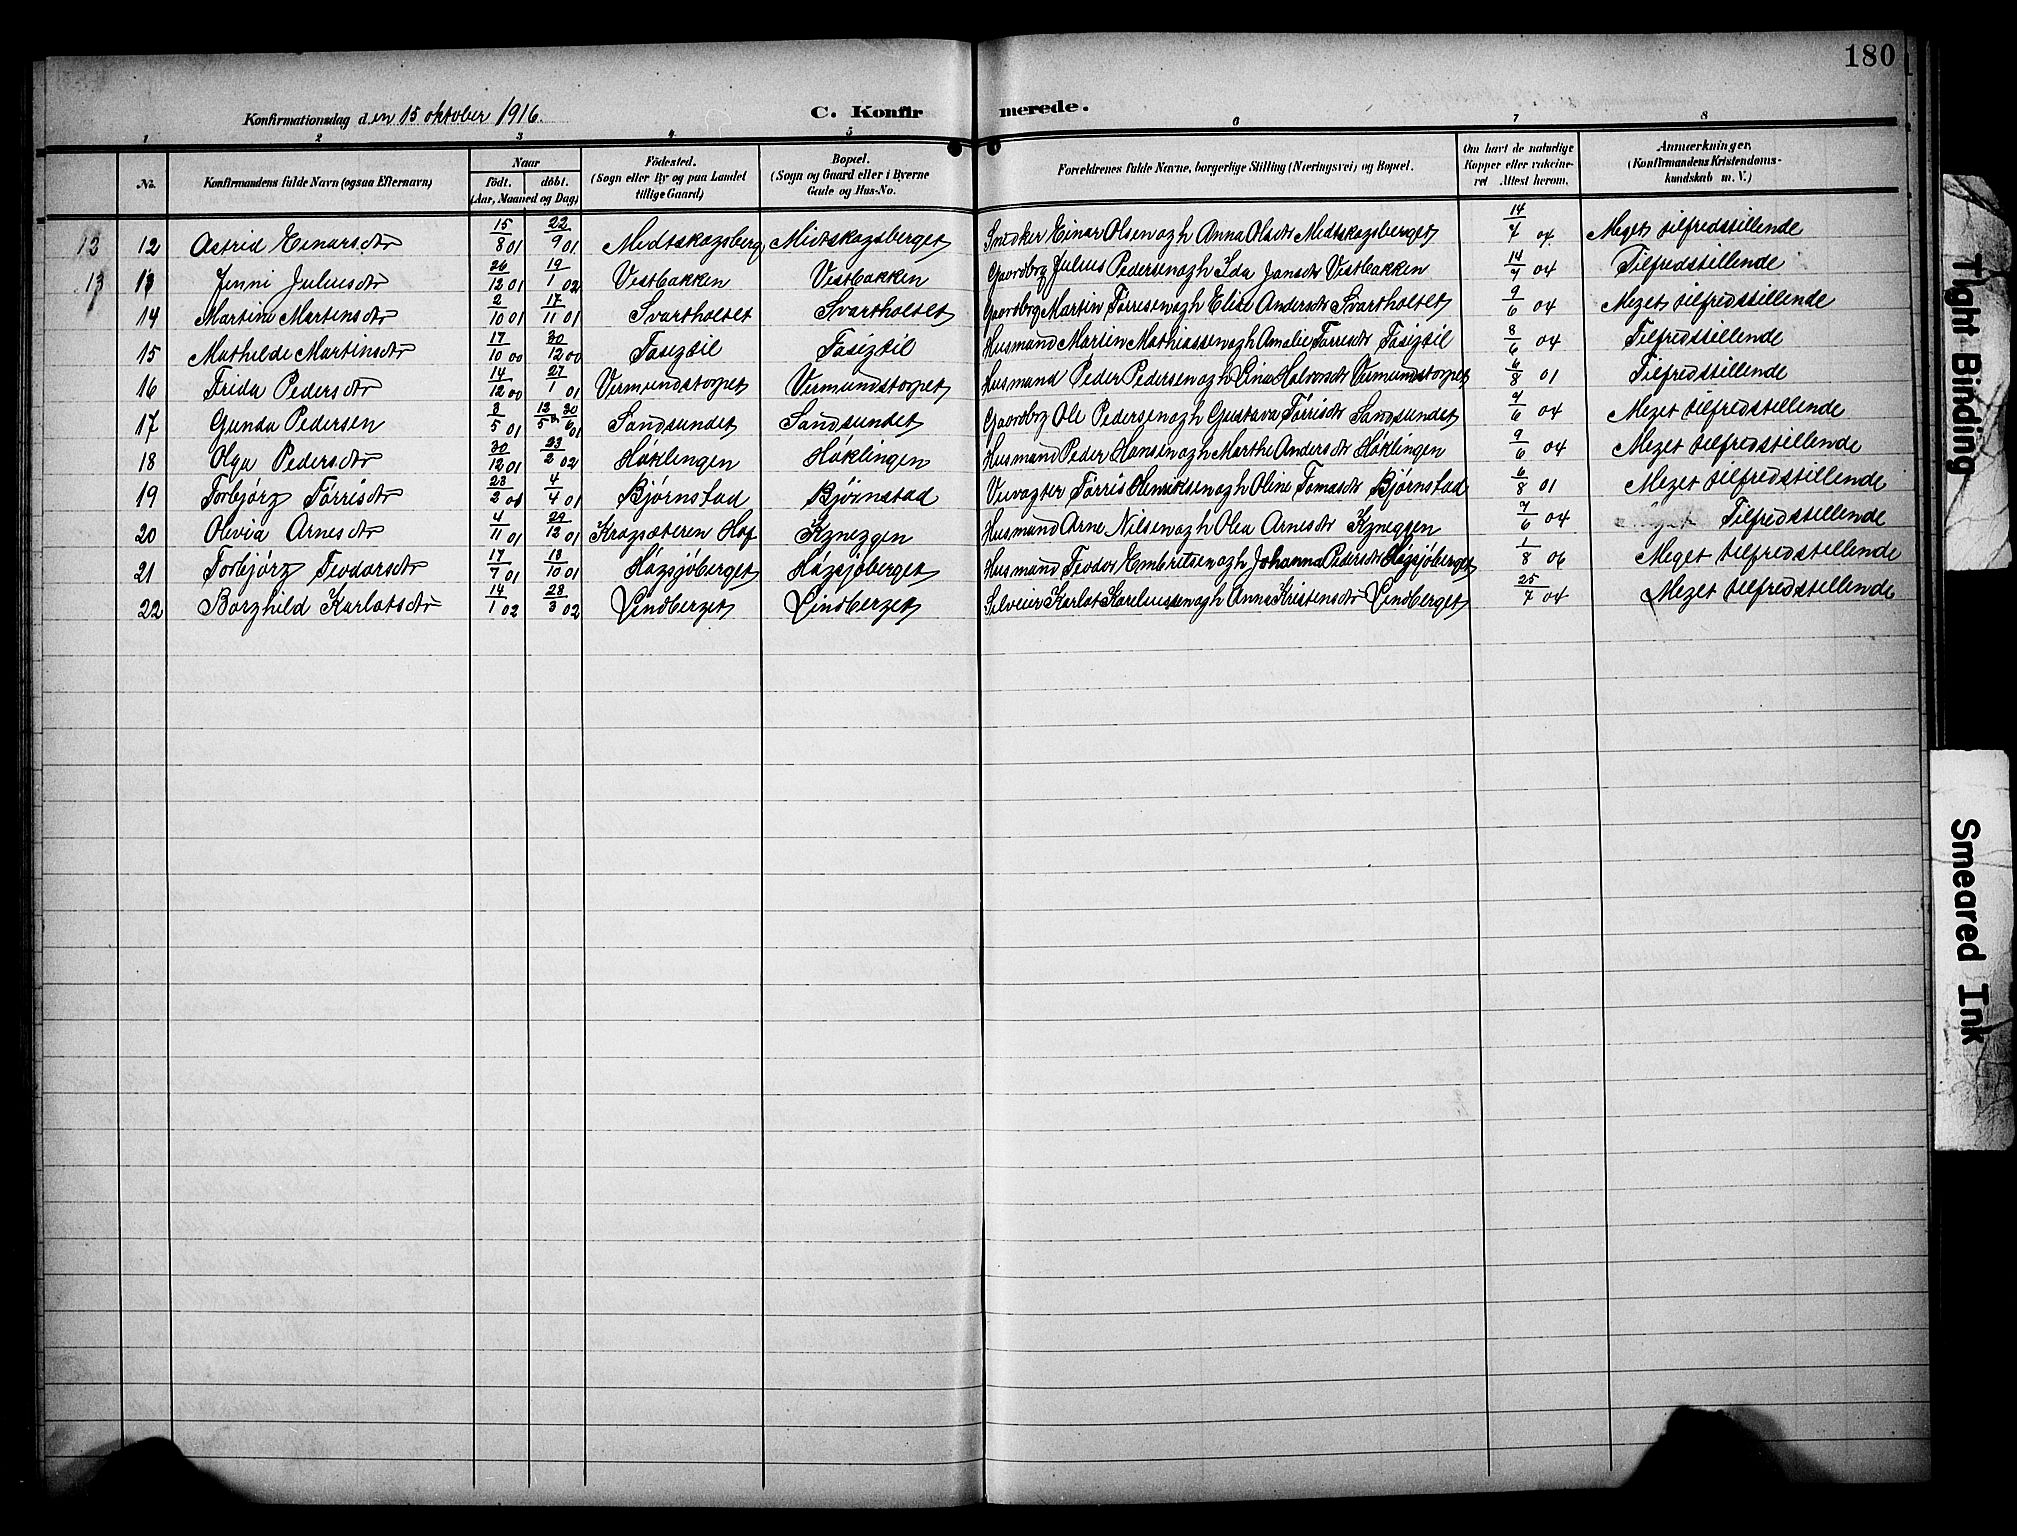 180
Konfirmationsdag den 15 oktober 1916. C. Konfirmerede.
1 2 3 4 5 6 7 8
No. Konfirmandens fulde Navn (ogsaa Efternavn) Naar födt. döbt. (Aar, Maaned og Dag) Födested. (Sogn eller By og paa Landet tillige Gaard) Bopæl. (Sogn og Gaard eller i Byerne Gade og Hus-No. Forældrenes fulde Navne, borgerlige Stilling (Næringsvei) og Bopæl. Om havt de naturlige Kopper eller vakcineret Attest herom. Anmærkninger. (Konfirmandens Kristendomskundskab m. V.)
13 12 Astrid Einarsdtr 15/8 01 22/9 01. Medtskogsberg Midtskogsberget Snedker Einar Olsen og h Anna Olsdtr Medtskogsberget 14/7 04 Meget tilfredstillende
13 Jenni Juliusdtr 26/12 01 19/1 02 Vestbakken Vestbakken Gaardbrg Julius Pedersen og h Ida Jansdtr Vestbakken 14/7 04 Tilfredstillende
14 Martine Martinsdtr 2/10 01 17/11 01 Svartholtet Svartholtet Gaardbrg Martin Tørresen og h Elise Andersdtr Svartholtet 9/6 04 Meget tilfredsstillende
15 Mathilde Martinsdtr 17/10 00 30/12 00 Fasigsil Fasigsil Husmand Martin Mathiassen og h Amalie Tørresdtr Fasigsil 8/6 04 Tilfredstillende
16 Frida Pedersdtr 14/12 00 27/1 01 Vermundstorpet Vermundstorpet Husmand Peder Pedersen og h Eina Halvorsdtr Vermundstorpet 6/8 01 Tilfredstillende
17 Gunda Pedersen 3/5 01 30/6 01 Sandsundet Sandsundet Gaardbrg Ole Pedersen og h Gustava Tørrisdtr Sandsundet 4/6 04 Meget tilfredstillende
18 Olga Pedersdtr 30/12 01 23/2 02 Høklingen Høklingen Husmand Peder Hansen og h Marthe Andersdtr Høklingen 9/6 04 Meget tilfredstillende
19 Torbjørg Tørrisdtr 23/2 01 4/4 01 Bjørnstad Bjørnstad Veivogter Tørris Henriksen og h Oline Tomasdtr Bjørnstad 6/8 01 Meget tilfredstillende
20 Olivia Arnesdtr 4/11 01 22/12 01 Kragsæteren Hof Kyneggen Husmand Arne Nilsen og h Olea Arnesdtr Kyneggen 7/6 04 Tilfredstillende
21 Torbjørg Teodorsdtr 17/7 01 13/10 01 Høgsjøberget Høgsjøberget Husmand Teodor Embretsen og h Johanna Pedersdtr Høgsjøberget 1/8 06 Meget tilfredstillende
22 Borghild Karlotsdtr 14/1 02 23/3 02 Lindberget Lindberget Selveier Karlot Karelinssen og h Anna Kristensdtr Lindberget 25/7 04 Meget tilfredstillende
Tight Binding
Smeared Ink